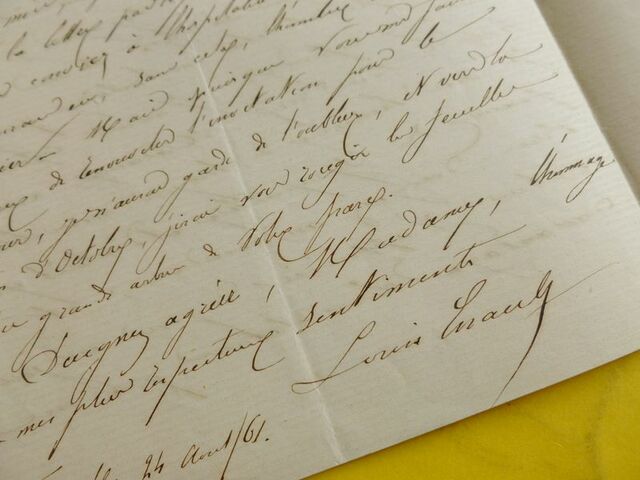 la lettre
conviez à l'hospitalité
sans cela,
Mais puisque vous me faites
de renouveler l'invitation pour le
je n'aurai garde de l'oublier, et vers la
d'Octobre, j'irai voir rougir les feuilles
grands arbres de votre parc.
Daignez agréer, Madame, l'hommage
mes plus respectueux sentiments
Louis Enault
24 Août/61.